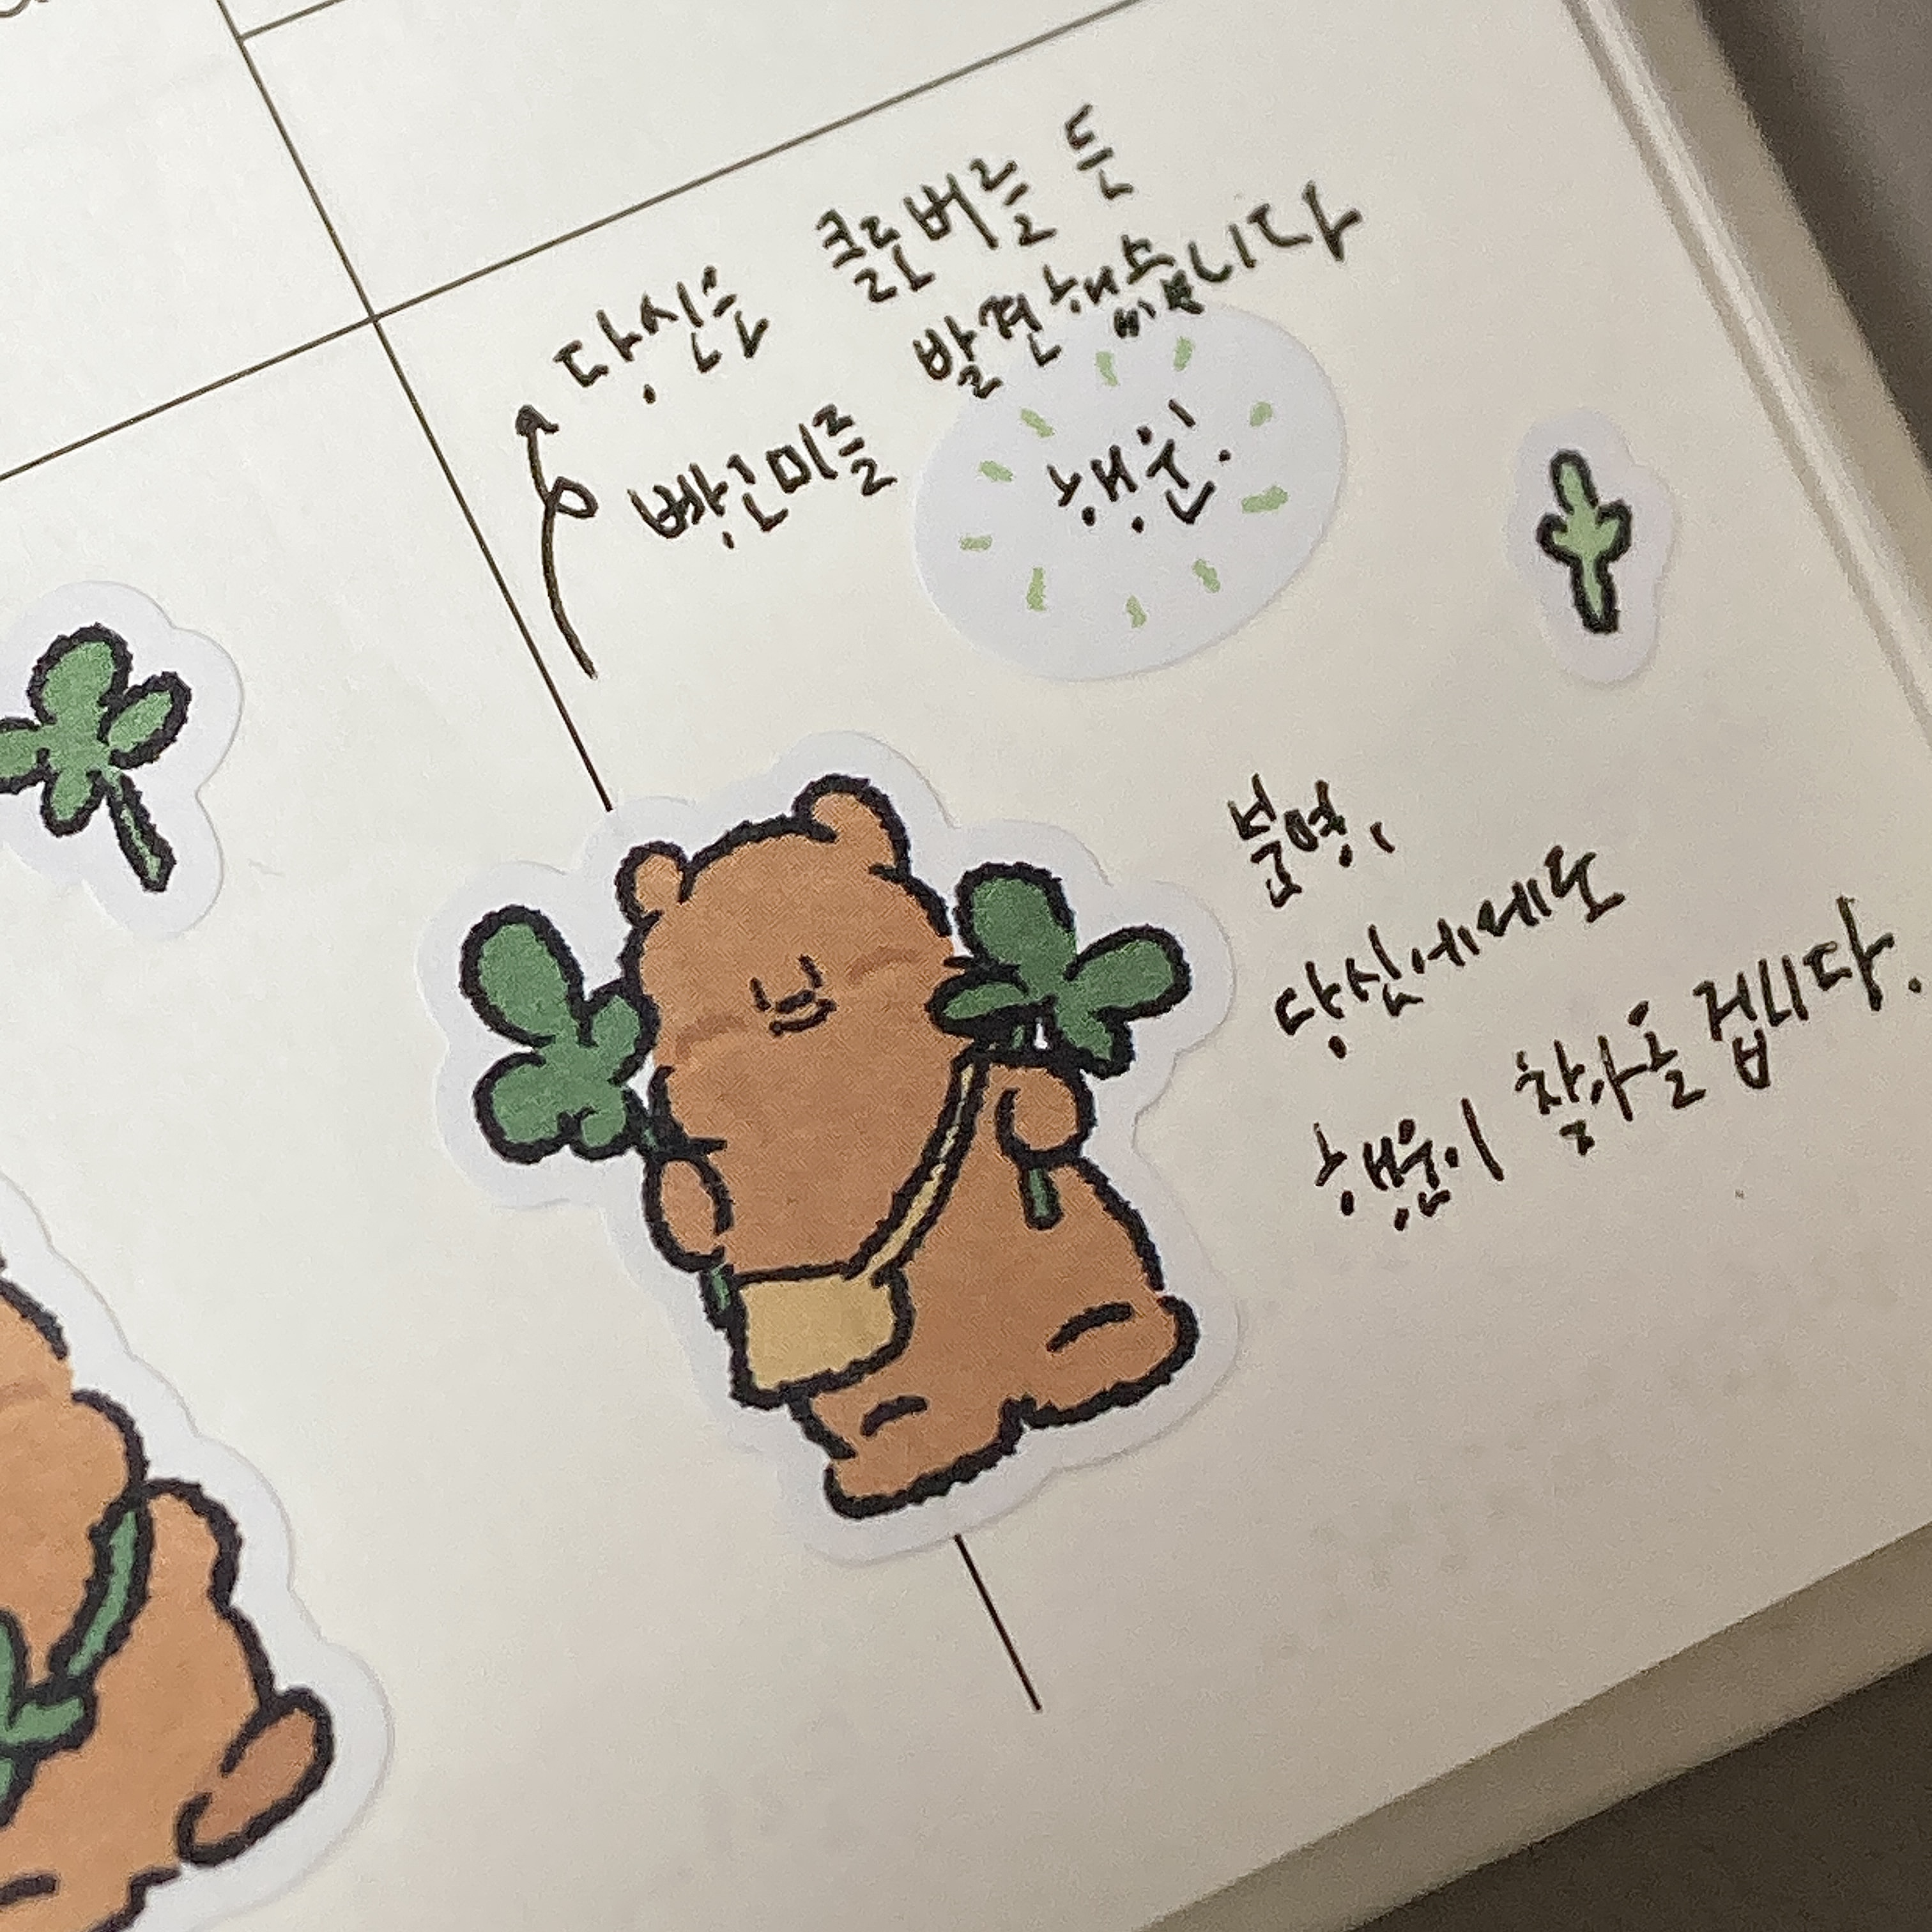 당신은 클로버를 든
빵곰미를 발견했습니다
행운.
분명,
당신에게도
행운이 찾아올 겁니다.